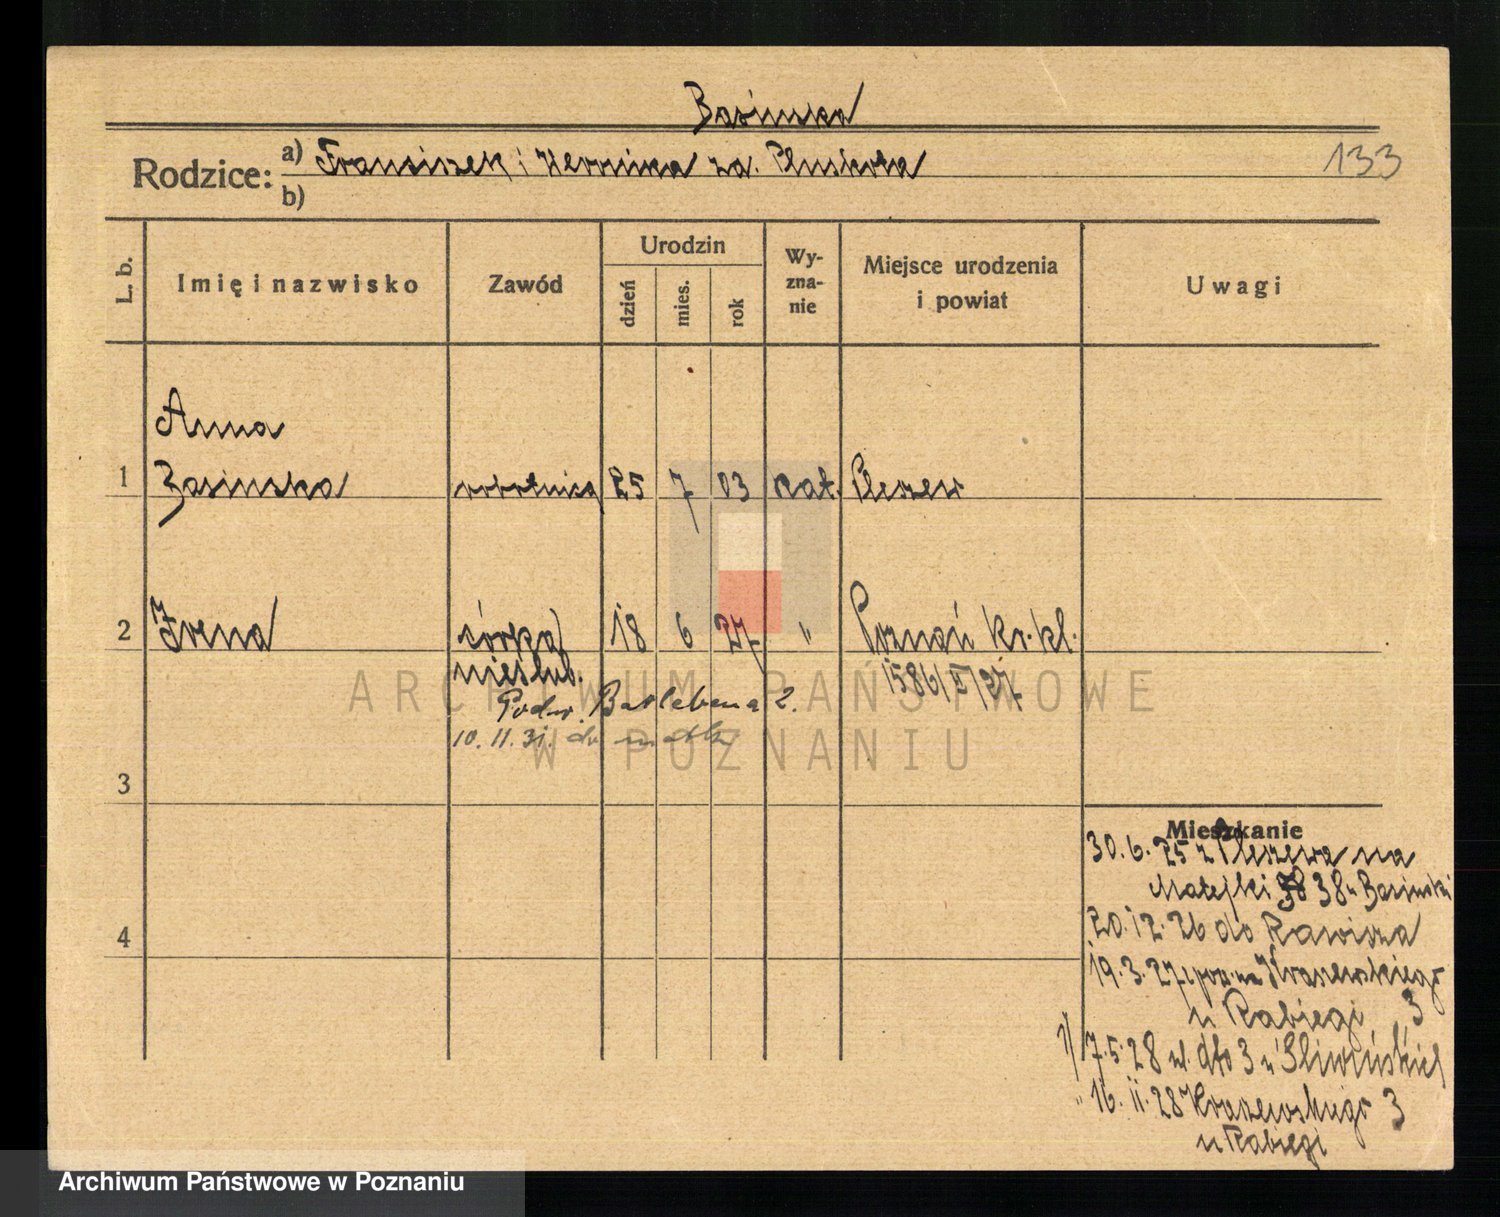 Basinska
Rodzice: a) Fransiszek i Weronika za. Pluskota 133
b)
L. b. Imię i nazwisko Zawód Urodzin dzień mies. rok Wy-zna-nie Miejsce urodzenia i powiat Uwagi
Anna
1 Basinska robotnica 25 7 03 kat. Pleszew
2 Irena córka 18 6 27 " Poznań kr. kl.
nieślub. 1586/II/27
Podw. 2.
10. 11. 31. do matki
ARCHIWUM PAŃSTWOWE
W POZNANIU
3
Mieszkanie
30. 6. 25 z Pleszewa na
Matejki 38 u Basinski
4
20. 12. 26 do Rawicza
19. 3. 27 na Kraszewskiego
u Rabiegi 3
7. 5. 28 dto 3 u Śliwińskiej
16. 11. 28 Kraszewskiego 3
u Rabiegi
Archiwum Państwowe w Poznaniu